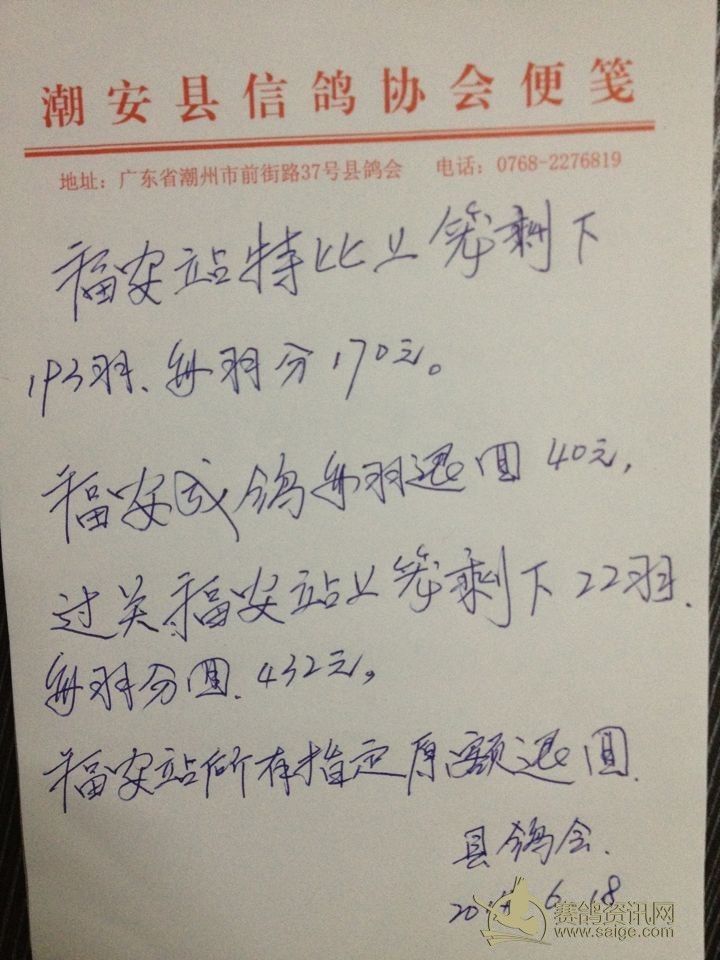 潮安县信鸽协会便笺
地址：广东省潮州市前街路37号县鸽会 电话：0768-2276819
福安站特比上笼剩下
193羽、每羽分170元。
福安成鸽每羽退回40元，
过关福安站上笼剩下22羽、
每羽分回、432元。
福安站所有指定原额退回
县鸽会、
6.18
赛鸽资讯网
www.saige.com